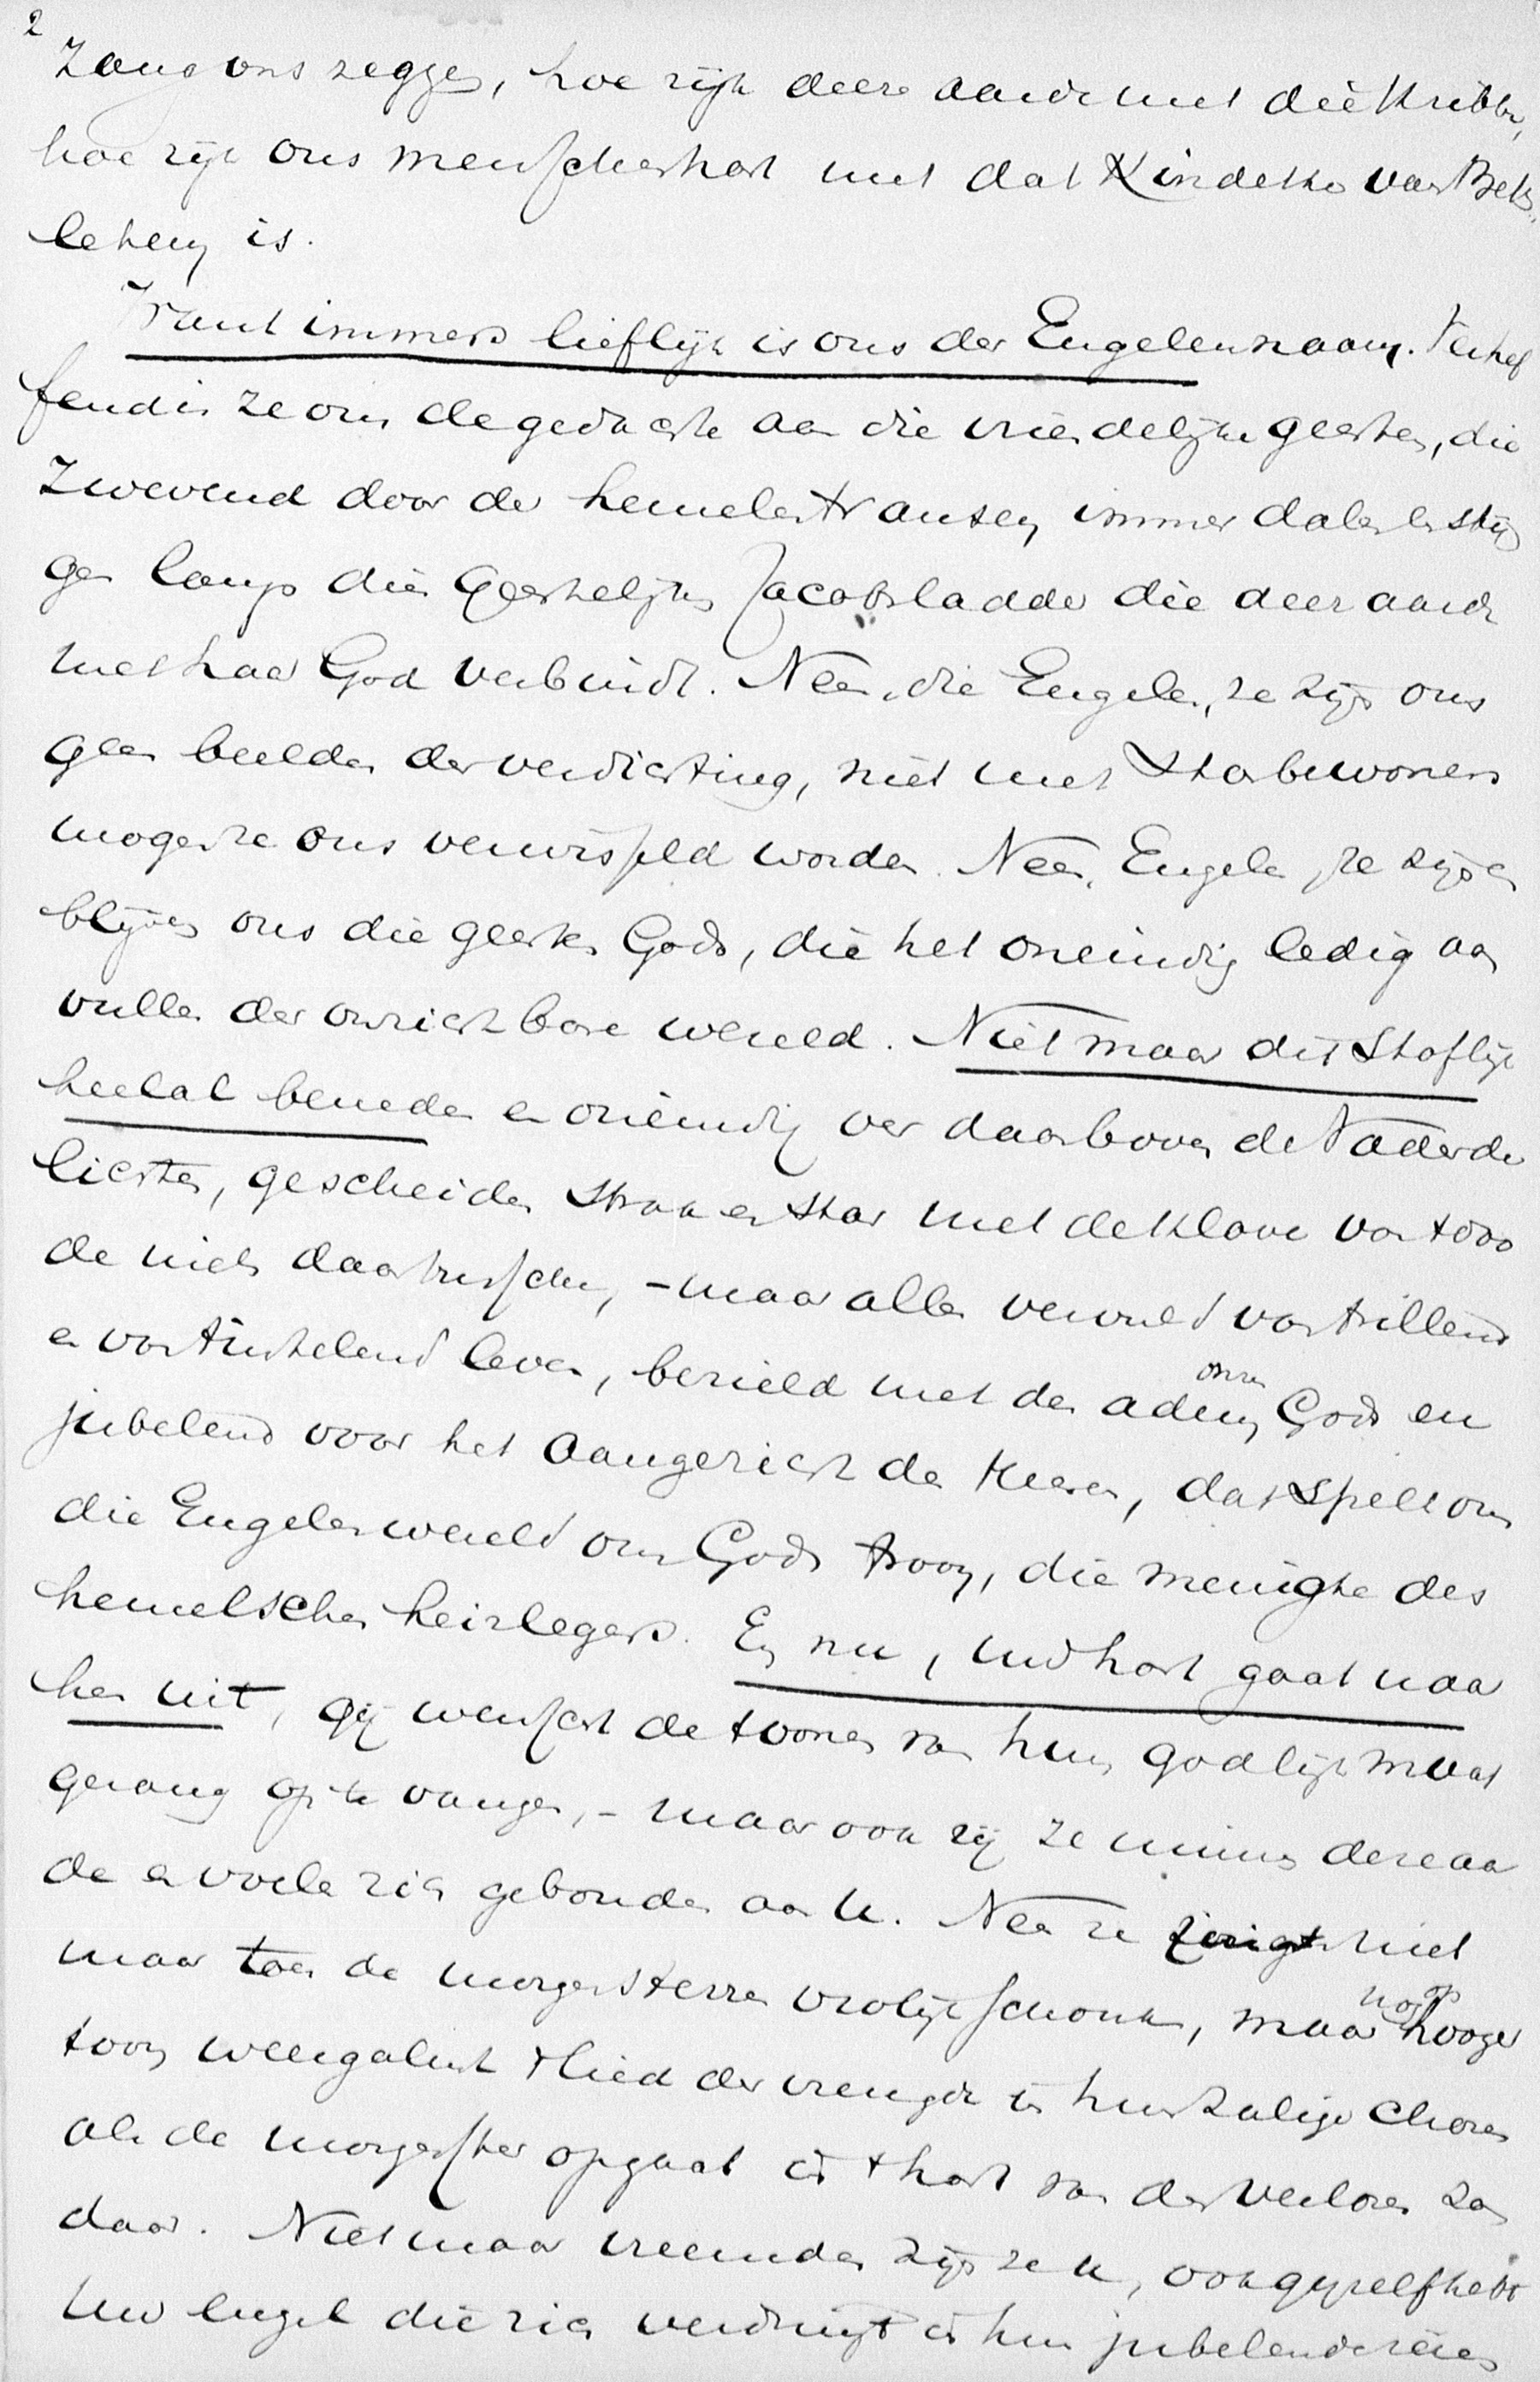 2
Zang ons zegge, hoe rijk deze aarde met die Kribbe,
hoe rijk ons menschenhart met dat Kindeke van Beth-
lehem is.
Want immers lieflijk is ons der Engelen naam. Verhef
fend is ze ons de gedachte aan die vriendelijke geesten, die
zwevend door de hemeltransen, immer dalen en stij
gen langs die Geestelijke Jacobsladder die deez aarde
met haar God verbindt. Neen, die Engelen, ze zijn ons
geen beelden der verdichting, niet met starbewoners
mogen ze ons verwisseld worden. Neen, Engelen ze zijn en
blijven ons die geesten Gods, die het oneindig ledig aan
vullen der onzichtbare wereld. Niet maar dit stoflijk
heelal beneden en oneindig ver daarboven de Vader der
lichten, gescheiden strak en star met de klove van doo
de niets daartusschen, - maar alles vervuld van trillend
en van tintelend leven, bezield met den adem onzes Gods en
jubelend voor het aangezicht des Heeren, dat spelt ons
die Engelenwereld om Gods troon, die menigte des
hemelschen heirlegers. En nu, uw hart gaat naar
hen uit, gij wenscht de toonen van hun godlijk maat
gezang op te vangen, - maar ook zij ze minnen deze aar
de en voelen zich gebonden aan u. Neen ze zingen niet
maar toen de morgensterre vrolijk schonk, maar nog op hooger
toon weergalmt 't lied der vreugde in hun zalige choren
als de morgenster opgaat in 't hart van den verloren zoon
daar. Niet maar vreemden zijn ze u, ook gij zelf hebt
uw engel die zich verdringt in hun jubelende reien